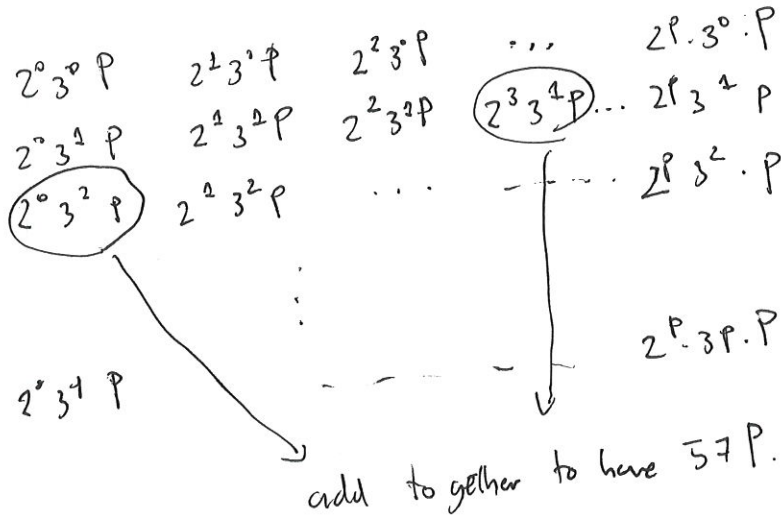 2⁰3⁰P 2¹3⁰P 2²3⁰P ... 2ᵖ·3⁰·P
2⁰3¹P 2¹3¹P 2²3¹P 2³3¹P ... 2ᵖ3¹P
2⁰3²P 2¹3²P ... ... 2ᵖ3²·P
2ᵖ·3ᵖ·P
2⁰3⁴P
add together to have 57P.